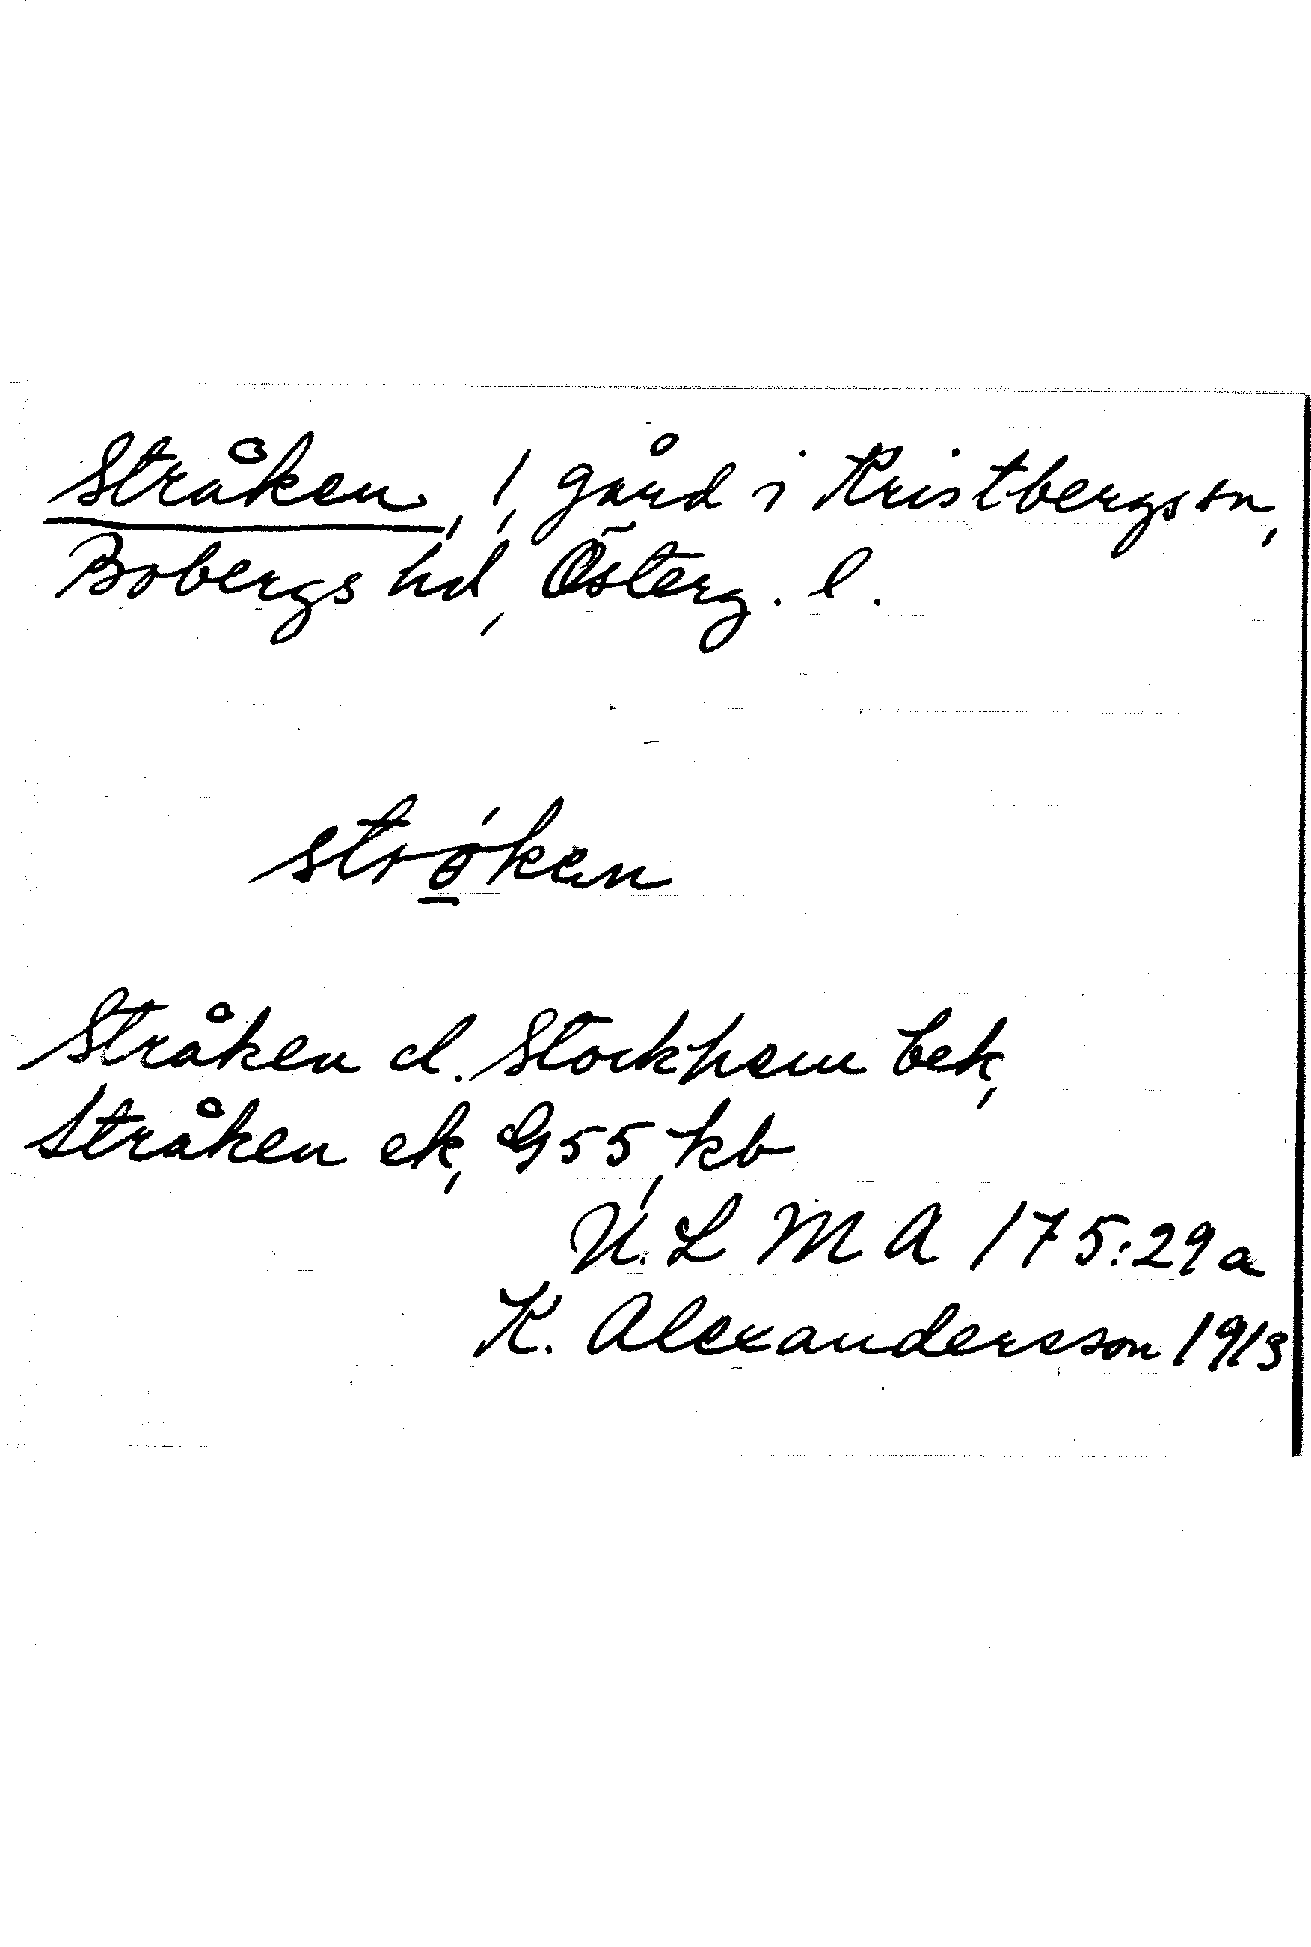 Stråken, 1, gård i Kristbergs sn,
Bobergs hd, Österg. l.
strǫ́kɐn
Stråken cl. Stockhem bek,
Stråken ek, G55, kb
U.L M A 175:29a
K. Alexandersson 1913